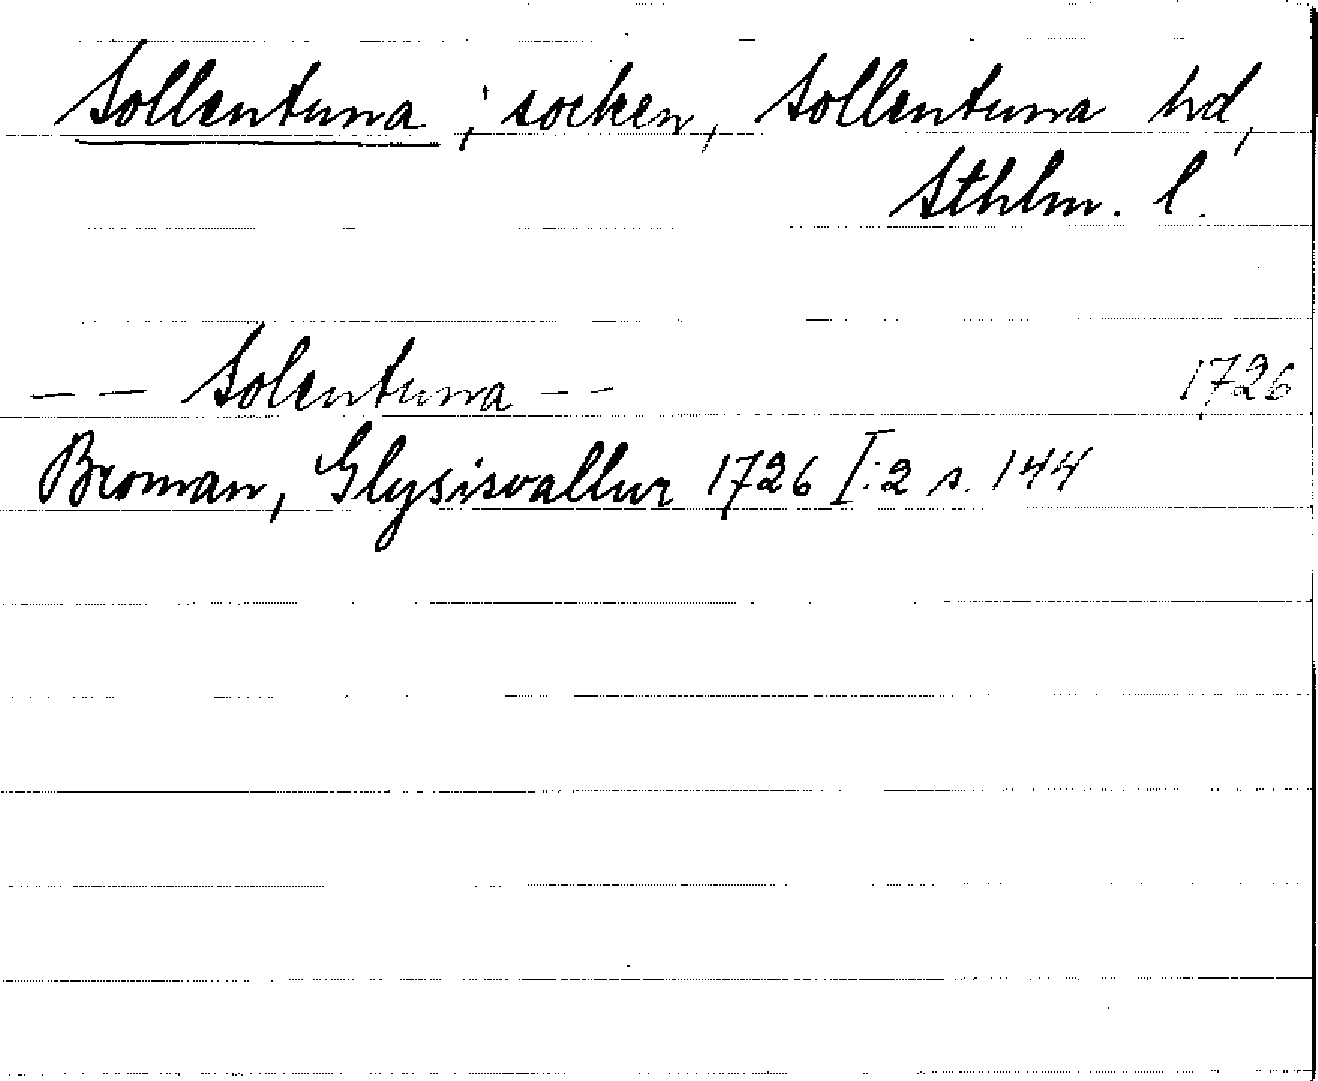 Sollentuna; socken, Sollentuna hd,
Sthlm. l.
– – Solentuna – – 1726
Broman, Glysisvallur 1726 I:2 s. 144